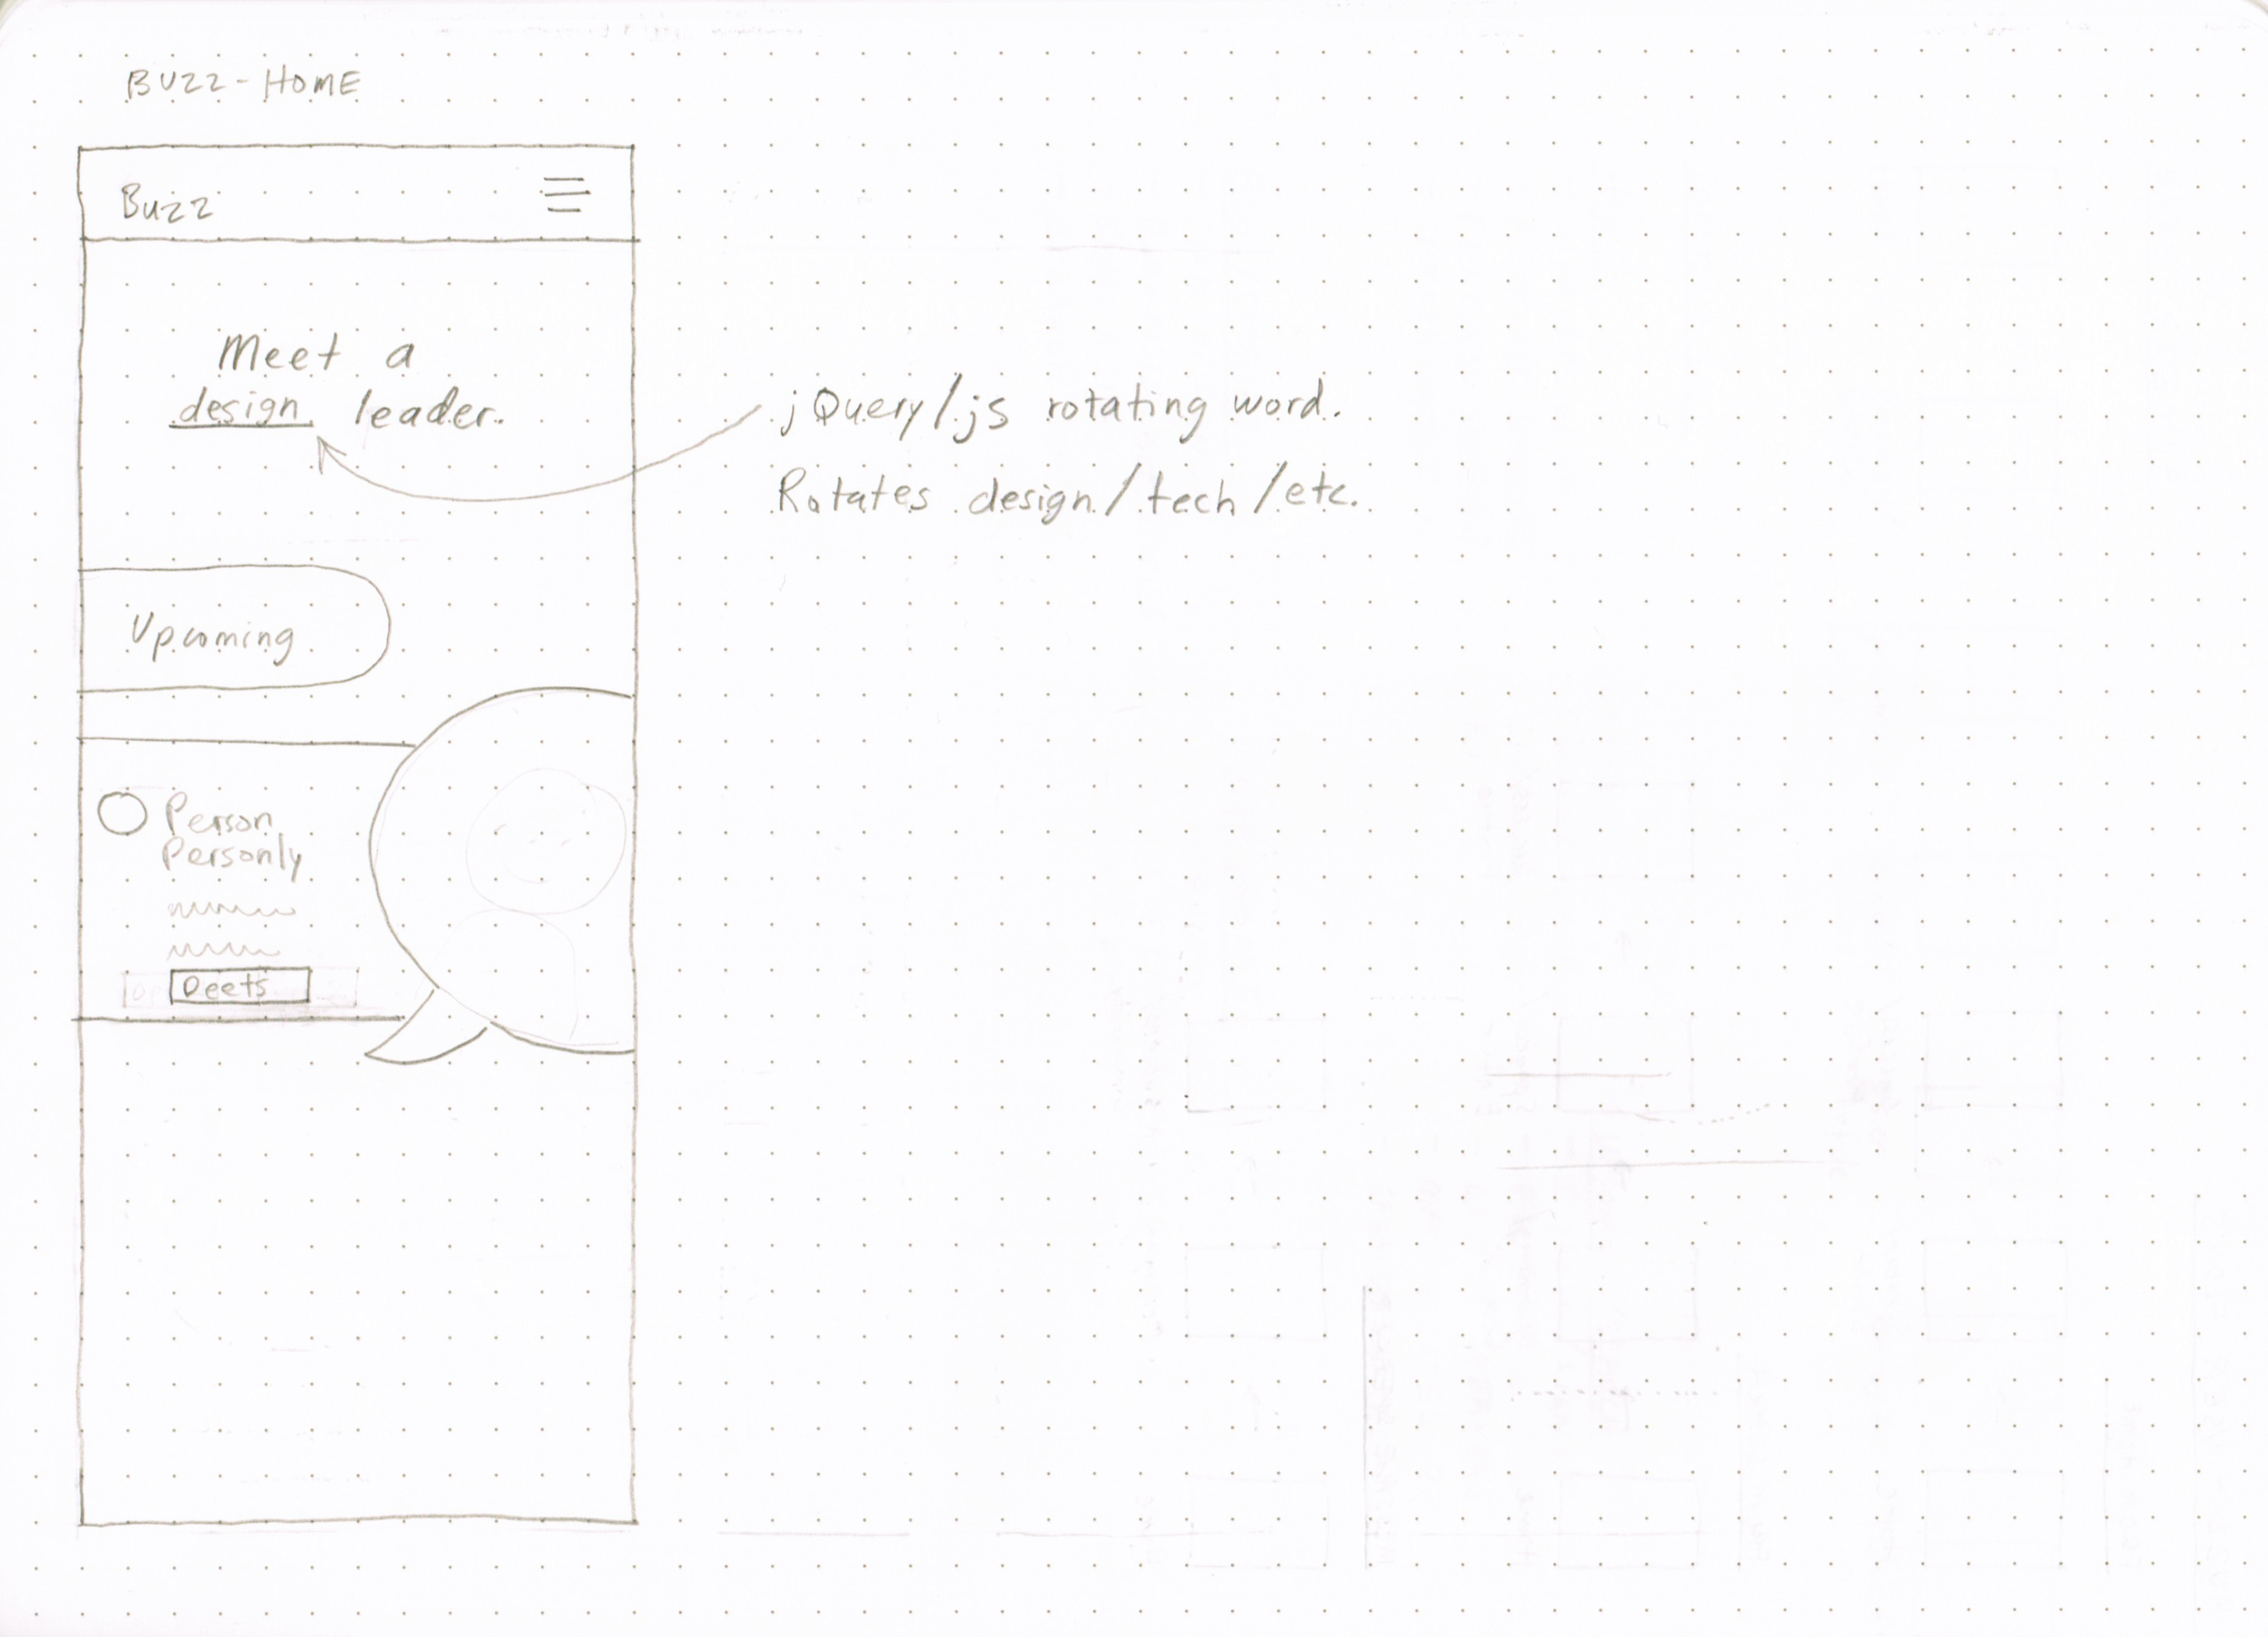 BUZZ-HOME
Buzz
Meet a
design leader.
jQuery/js rotating word.
Rotates design/tech/etc.
Upcoming
Person
Personly
Deets